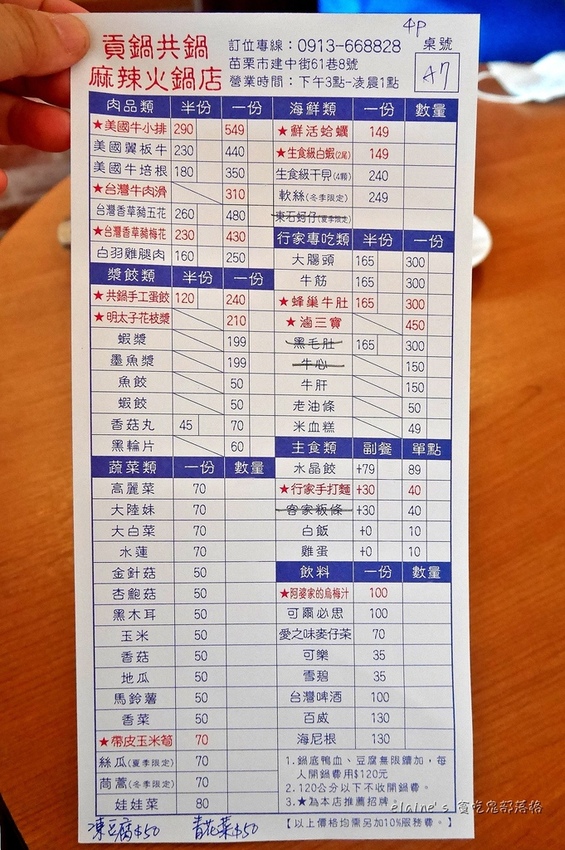 4P
貢鍋共鍋
麻辣火鍋店
訂位專線：0913-668828 桌號
苗栗市建中街61巷8號
營業時間：下午3點-凌晨1點
A7
肉品類 半份 一份
★美國牛小排 290 549
美國翼板牛 230 440
美國牛培根 180 350
★台灣牛肉滑 310
台灣香草豬五花 260 480
★台灣香草豬梅花 230 430
白羽雞腿肉 160 250
漿餃類 半份 一份
★共鍋手工蛋餃 120 240
★明太子花枝漿 210
蝦漿 199
墨魚漿 199
魚餃 50
蝦餃 50
香菇丸 45 70
黑輪片 60
蔬菜類 一份 數量
高麗菜 70
大陸妹 70
大白菜 70
水蓮 70
金針菇 50
杏鮑菇 50
黑木耳 50
玉米 50
香菇 50
地瓜 50
馬鈴薯 50
香菜 50
★帶皮玉米筍 70
絲瓜(夏季限定) 70
茼蒿(冬季限定) 70
娃娃菜 80
凍豆腐$50 青花菜$50
海鮮類 一份 數量
★鮮活蛤蠣 149
★生食級白蝦(2尾) 149
生食級干貝(4顆) 240
軟絲(冬季限定) 249
東石蚵仔(夏季限定)
行家專吃類 半份 一份
大腸頭 165 300
牛筋 165 300
★蜂巢牛肚 165 300
★滷三寶 450
黑毛肚 165 300
牛心 150
牛肝 150
老油條 50
米血糕 49
主食類 副餐 單點
水晶餃 +79 89
★行家手打麵 +30 40
客家粄條 +30 40
白飯 +0 10
雞蛋 +0 10
飲料 一份 數量
★阿婆家的烏梅汁 100
可爾必思 100
愛之味麥仔茶 70
可樂 35
雪碧 35
台灣啤酒 100
百威 130
海尼根 130
1.鍋底鴨血、豆腐無限續加，每
人開鍋費用$120元
2.120公分以下不收開鍋費。
3.★為本店推薦招牌。
【以上價格均需另加10%服務費。】
elaine's 貪吃鬼部落格